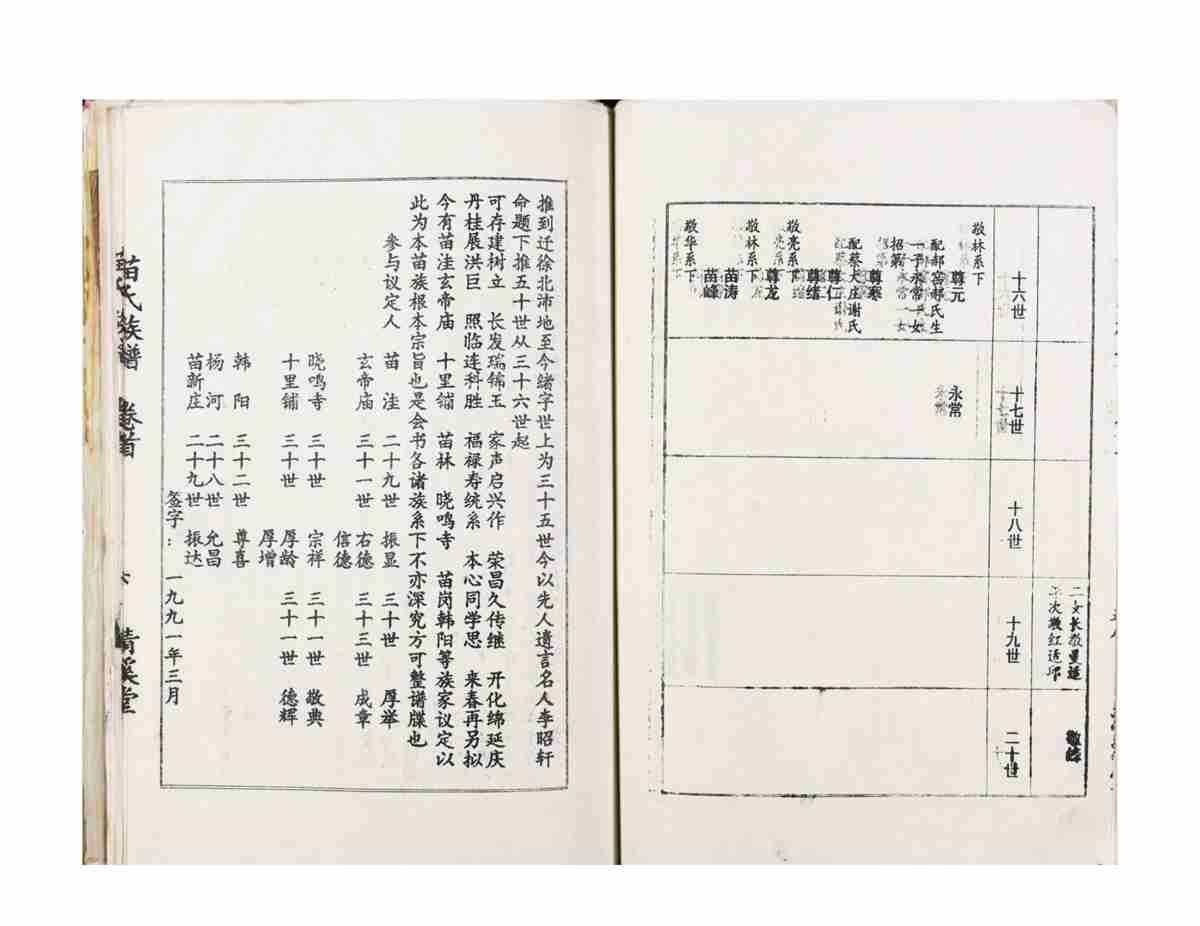 十六世
十七世
十八世
十九世
二十世
敬林系下
尊元
配郝窑郝氏生
一子永常一女
招第
尊寒
配蔡大庄谢氏
尊仁
尊绪
敬亮系下
尊龙
敬林系下
苗涛
苗峰
敬华系下
永常
推到迁徐北沛地至今绪字世上为三十五世今以先人遗言名人李昭轩
命题下推五十世从三十六世起
可存建树立 长发瑞锦玉 家声启兴作 荣昌久传继 开化绵延庆
丹桂展洪巨 照临连科胜 福禄寿统系 本心同学思 来春再另拟
今有苗洼玄帝庙 十里铺 苗林 晓鸣寺 苗岗韩阳等族家议定以
此为本苗族根本宗旨也是会书各诸族系下不亦深究方可整谱牒也
参与议定人
苗洼 二十九世 振显 三十世 厚举
玄帝庙 三十一世 右德 三十三世 成章
信德
晓鸣寺 三十世 宗祥 三十一世 敬典
十里铺 三十世 厚龄 三十一世 德辉
厚增
韩阳 三十二世 尊喜
杨河 二十八世 允昌
苗新庄 二十九世 振达
签字：一九九一年三月
苗氏族谱 卷首 清溪堂